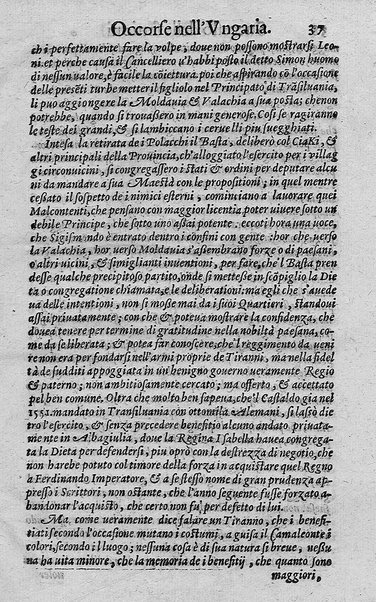 Occorse nell'Vngaria. 37
chi perfettamente fare la volpe, doue non possono mostrarsi Leo-
ni. et perche causa il Cancelliero u'habbi posto il detto Simon huomo
di nessun valore, è facile la coiettura, poi che aspirando cō l'occasione
delle presēti turbe metter il figliolo nel Principato di Trāsiluania,
li puo aggiongere la Moldauia & Valachia a sua posta; che non
potrebbe, quando si trouassero in mani generose. Cosi se ragirano
le teste dei grandi, & si lambiccano i ceruelli piu suegghiati.
Intesa la retirata dei Polacchi il Basta, deliberò col Ciaki, &
altri principali della Prouincia, ch'alloggiato l'esercito per i villag
gi circonuicini, si congregassero i stati & ordini per deputare alcu
ni da mandare a sua Maestà con le propositioni, in quel mentre
cessato il sospetto de i nimici esterni, cominiano a lauorare quei
Malcontenti, che pensano con maggior licentia poter viuere sotto un
debile Principe, che sotto uno assai potente. eccoti hora una uoce,
che Sigismōdo è entrato dentro i confini con gente: hor che uerso
la Valachia, hor uerso Moldania s'assembrano forze o di paesani,
o altri uicini, & simiglianti inuentioni, per fare, che'l Basta pren
desse qualche precipitoso partito, onde si mettesse in scōpiglio la Die
ta o congregatione chiamata, e le deliberationi: ma egli che s'auede
ua delle intentioni, non si mosse mai da i suoi Quartieri, standoui
assai priuatamente; con che & poteua mostrare la confidenza, che
douea tenere per termine di gratitudine nella nobiltà paesana, co-
me da se liberata; & potea far conoscere, che'l reggimento da ueni
re non era per fondarsi nell'armi proprie de Tiranni, ma nella fidel
tà de sudditi appoggiata in un benigno gouerno ueramente Regio
& paterno; non ambitiosamente cercato; ma offerto, & accettato
pel ben comune. Oltra che molto ben sapeua, che'l Castaldo gia nel
1551. mandato in Transiluania con ottomila Alemani, si lasciò die
tro l'esercito, & senza precedere beneficio alcuno andato priuata-
mente in Albagiulia, doue la Regina Isabella hauea congrega-
ta la Dieta per defendersi, piu oprò con la destrezza di negotio, che
non harebe potuto col timore della forza in acquistare quel Regno
a Ferdinando Imperatore, & a se stesso nome di gran prudenza ap-
presso i Scrittori, non ostante, che l'anno seguente fusse forzato a-
bandonar l'acquisto, che certo non fu per defetto di lui.
Ma, come ueramente dice salare un Tiranno, che i benefi-
tiati secondo l'occasione mutano i costumi, a guisa il Camaleonte i
colori, secondo il luogo; nessuna cosa è di sua natura si breue, nessu
na ha uita minore, che la memoria de i benefitij, che quanto sono
maggiori,